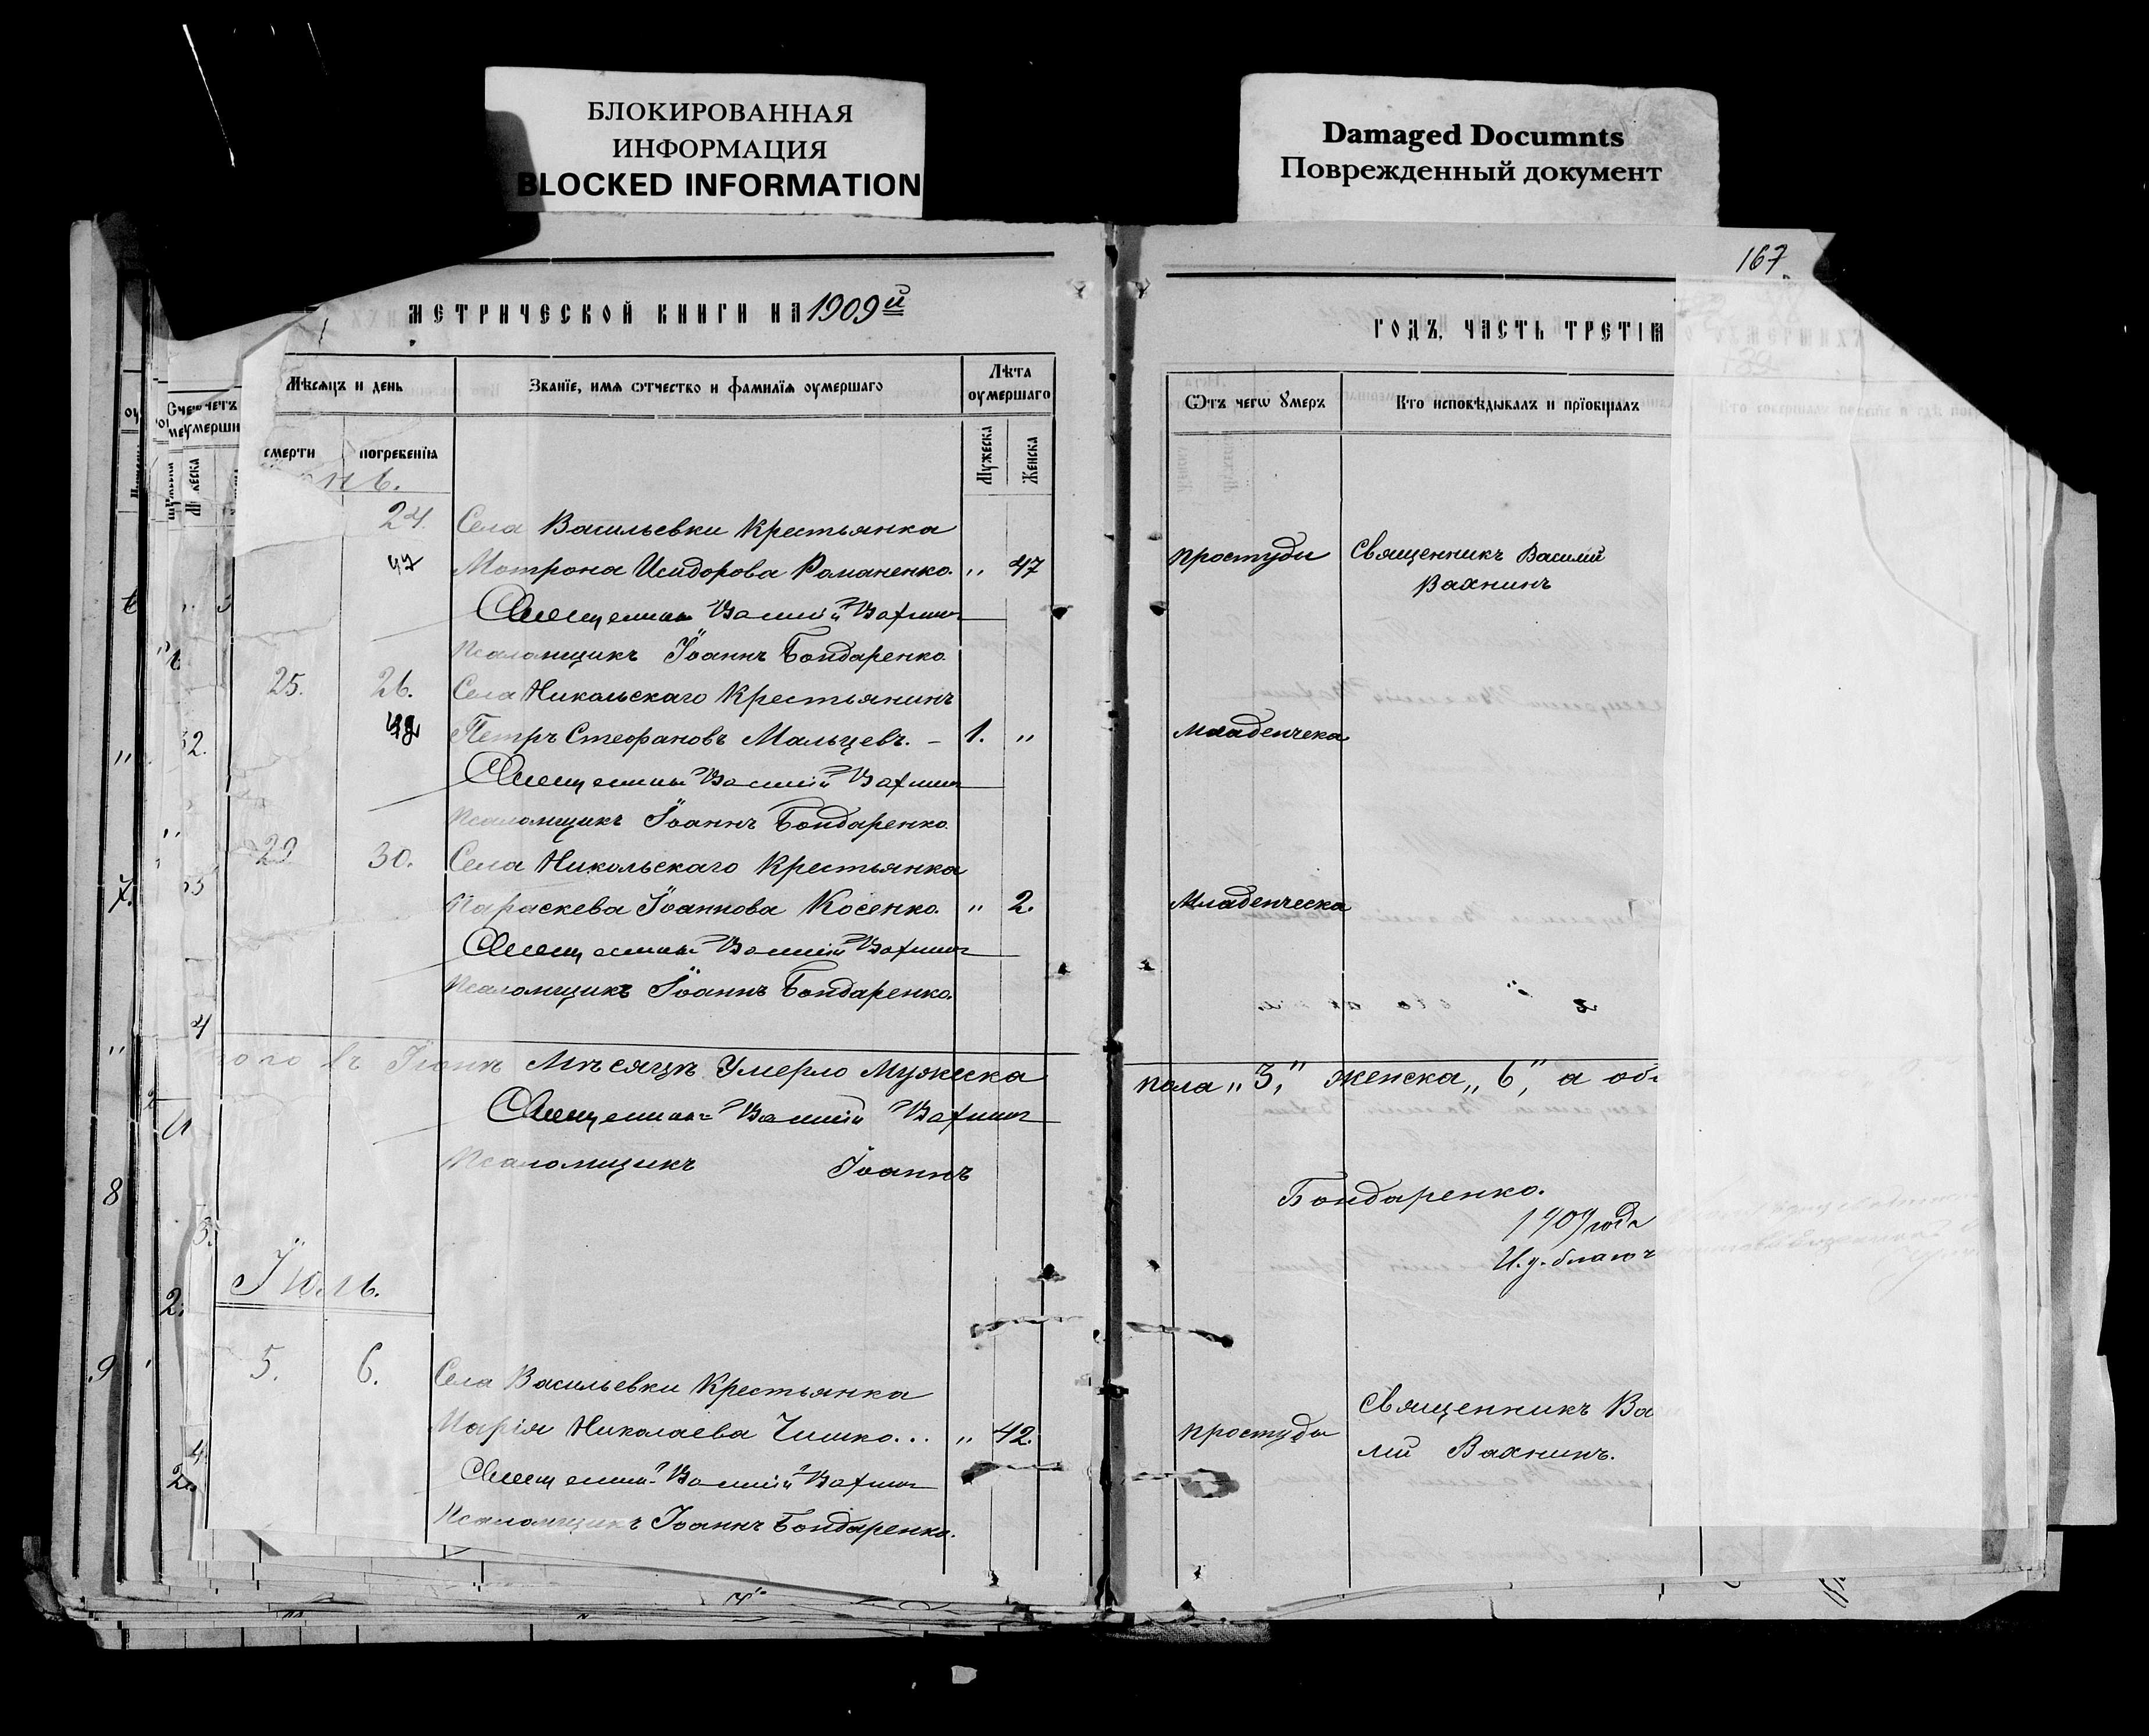 БЛОКИРОВАННАЯ
ИНФОРМАЦИЯ
BLOCKED INFORMATION
Damaged Documnts
Поврежденный документ
167.
МЕТРИЧЕСКОЙ КНИГИ НА 1909й
ГОДЪ, ЧАСТЬ ТРЕТІѦ
Мѣсяцъ и день
Званїе, имѧ ѻтчество и фамилїѧ оумершаго
Лѣта
оумершаго
смерти
погребенїѧ
Мужеска
Женска
Ѿтъ чегѡ Ꙋмеръ
Кто исповѣдывалъ и прїобщалъ
нь.
24.
Села Васильевки Крестьянка
Мотрона Исидорова Романенко. " 47
простуды
Священникъ Василий
Вахнинъ
Священникъ Василій Вахнинъ
Псаломщикъ Іоаннъ Бондаренко.
25. 26. Села Никольскаго Крестьянинъ
Петръ Стефановъ Мальцевъ. – 1. "
Младенческа
Священникъ Василій Вахнинъ
Псаломщикъ Іоаннъ Бондаренко.
29 30. Села Никольскаго Крестьянка
Параскева Іоаннова Косенко. " 2.
Младенческа
Священникъ Василій Вахнинъ
Псаломщикъ Іоаннъ Бондаренко.
ого въ Іюнѣ Мѣсяцѣ Умерло Мужеска
пола „3,“ женска „6,“ а об
Священникъ Василій Вахнинъ
Псаломщикъ Іоаннъ
Бондаренко.
1909 года
И. д. благоч
Іюль.
5. 6. Села Васильевки Крестьянка
Марія Николаева Чишко... " 42.
простуды
Священникъ Ва
лий Вахнинъ.
Священникъ Василій Вахнинъ
Псаломщикъ Іоаннъ Бондаренко.